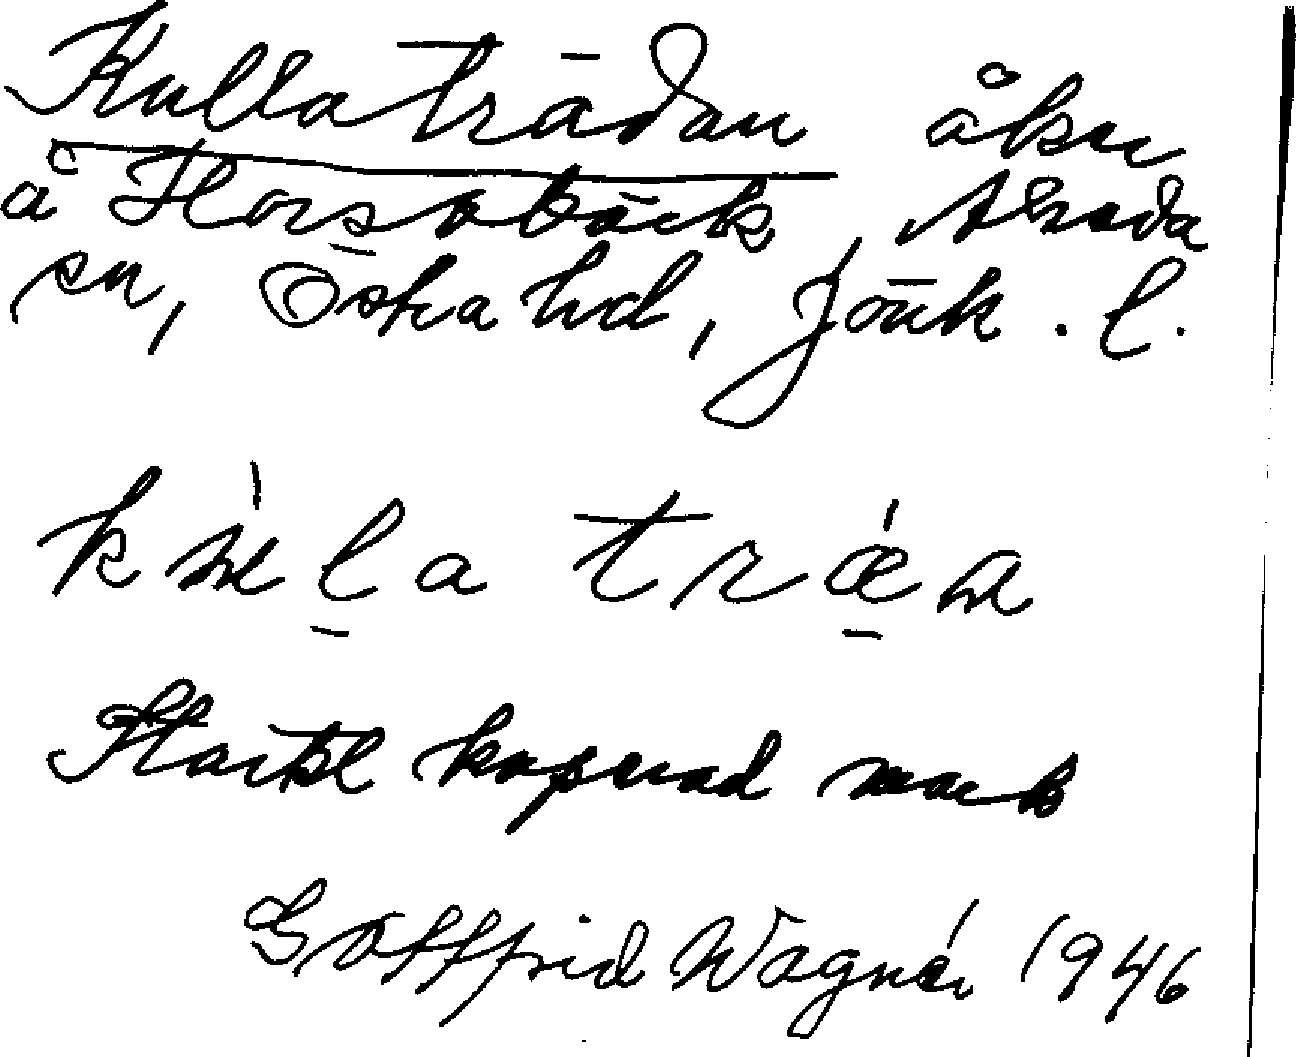 Kullaträdan åker
å Horsabäck, Skeda
sn, Östra hd, Jönk. l.
kùl̠a trǽ̠a
Starkt kuperad mark
Gottfrid Wagnér 1946